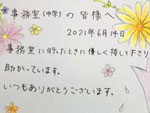 事務室(中学)の皆様へ
2021年6月14日
事務室に行ったときに優しく接して下さり
助かっています。
いつもありがとうございます。